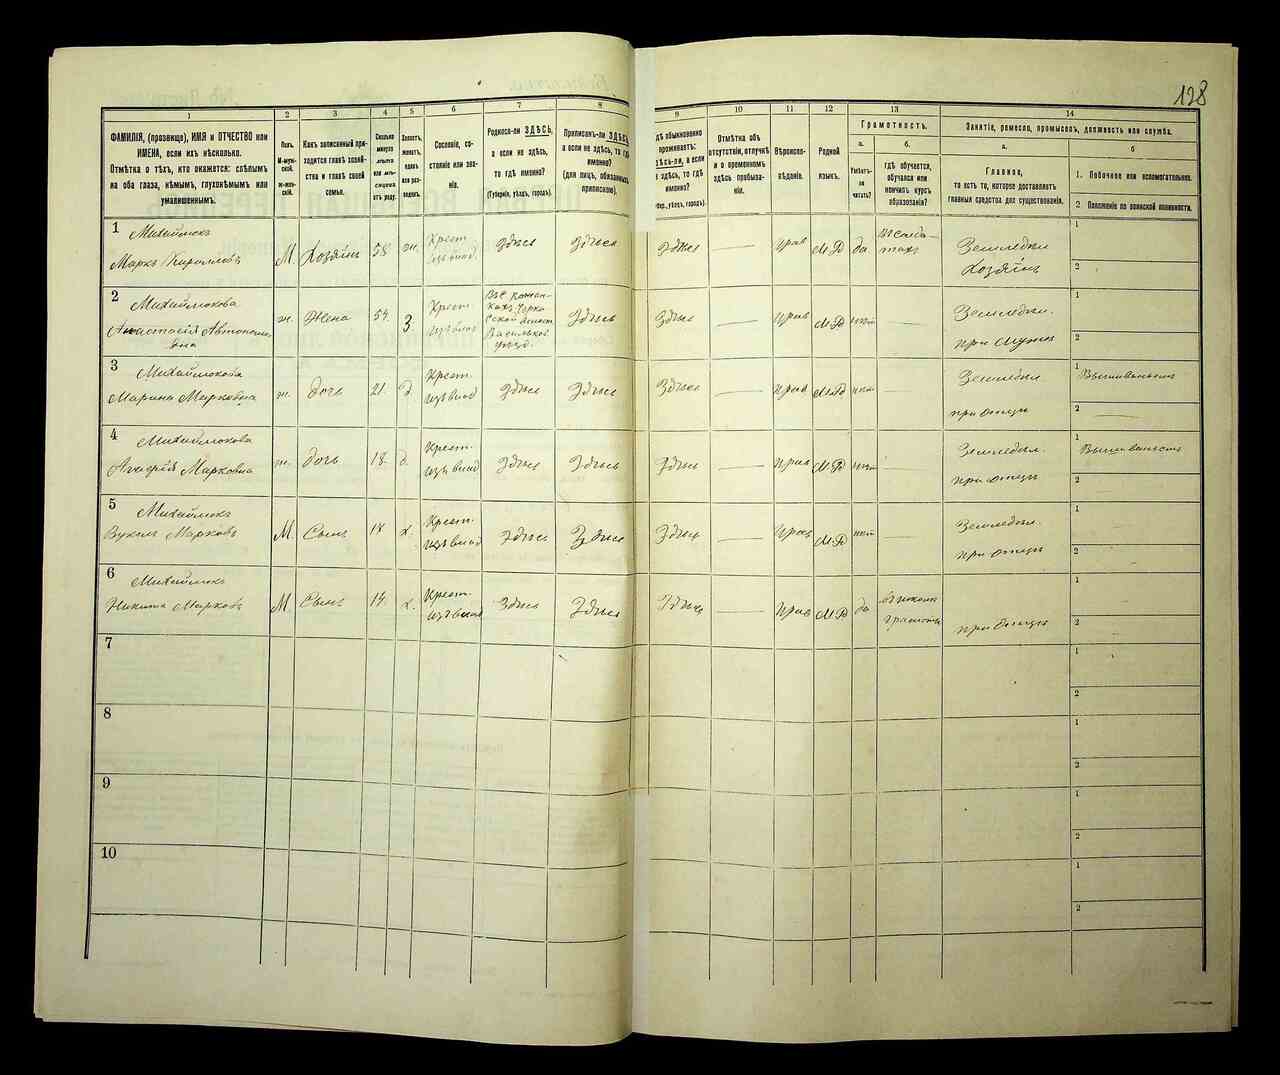 128
1 2 3 4 5 6 7 8 9 10 11 12 13 14
ФАМИЛІЯ, (прозвище), ИМЯ и ОТЧЕСТВО или
ИМЕНА, если ихъ нѣсколько.
Отмѣтка о тѣхъ, кто окажется: слѣпымъ
на оба глаза, нѣмымъ, глухонѣмымъ или
умалишеннымъ.
Полъ.
М-мужской.
Ж-женскій.
Какъ записанный при-
ходится главѣ хозяй-
ства и главѣ своей
семьи.
Сколько
минуло
лѣтъ
или мѣ-
сяцевъ
отъ роду.
Холостъ,
женатъ,
вдовъ
или раз-
веденъ.
Сословіе, со-
стояніе или зва-
ніе.
Родился-ли ЗДѢСЬ,
а если не здѣсь,
то гдѣ именно?
(Губернія, уѣздъ, городъ).
Приписанъ-ли ЗДѢСЬ,
а если не здѣсь, то гдѣ
именно?
(для лицъ, обязанныхъ
припискою).
дѣ обыкновенно
проживаетъ:
здѣсь-ли, а если
не здѣсь, то гдѣ
именно?
(губер., уѣздъ, городъ).
Отмѣтка объ
отсутствіи, отлучкѣ
и о временномъ
здѣсь пребыва-
ніи.
Вѣроиспо-
вѣданіе.
Родной
языкъ.
Грамотность.
а.
Умѣетъ-
ли
читать?
б.
гдѣ обучается,
обучался или
кончилъ курсъ
образованія?
Занятіе, ремесло, промыселъ, должность или служба.
а.
Главное,
то есть то, которое доставляетъ
главныя средства для существованія.
б
1. Побочное или вспомогательное.
2 Положеніе по воинской повинности.
1 Михаймюкъ
Маркъ Кирилловъ М. Хозяинъ 58 ж. Крест. Здѣсь Здѣсь Здѣсь — прав М.Р да.
Земледѣл.
Хозяинъ
1
2
2 Михаймюкова
Анастасія Автономо-
вна ж. Жена 54. 3 Крест. Здѣсь Здѣсь — прав М.Р нѣт —
Васильков.
уѣзд.
Земледѣл.
при мужѣ
1
2
3 Михаймюкова
Марина Марковна ж. дочь 21. д Крест. Здѣсь Здѣсь Здѣсь — прав М.Р нѣт —
Земледѣл.
при отцѣ
1 Вышиваньемъ
2 —
4 Михаймюкова
Марковна ж. дочь 18. д. Крест. Здѣсь Здѣсь Здѣсь — прав М.Р нѣт —
Земледѣл.
при отцѣ
1 Вышиваньемъ
2 —
5 Михаймюкъ
Вукилъ Марковъ М. Сынъ 18 х. Крест. Здѣсь Здѣсь Здѣсь — прав М.Р нѣт —
Земледѣл.
при отцѣ
1 —
2 —
6 Михаймюкъ
Никита Марковъ М. Сынъ 14. х. Крест. Здѣсь Здѣсь Здѣсь — прав М.Р да
грамоты
при отцѣ
1 —
2 —
7 1
2
8 1
2
9 1
2
10 1
2